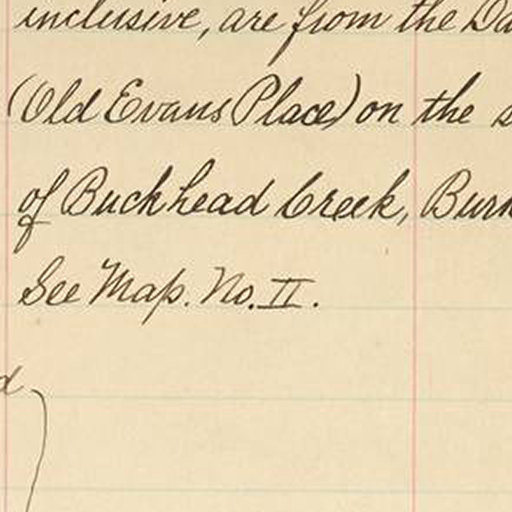 inclusive, are from the Da
(Old Evans Place) on the s
of Buckhead Creek, Burk
See Map. No. II.
d